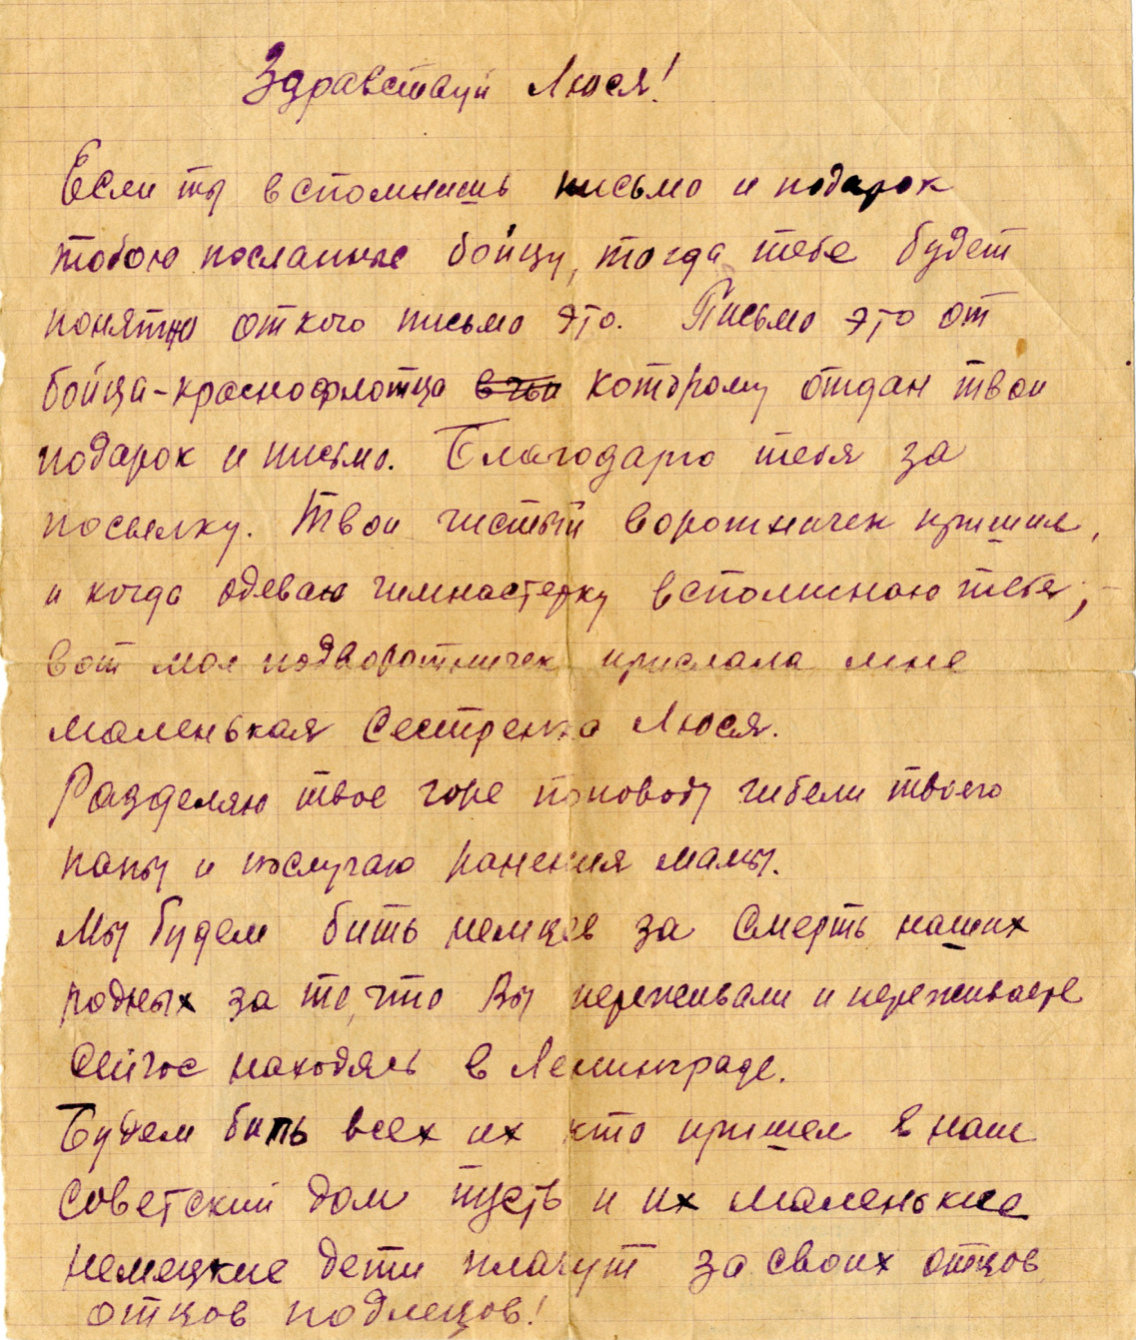 Здравствуй Люся!
Если ты вспомнишь письмо и подарок
тобою посланные бойцу, тогда тебе будет
понятно от кого письмо это. Письмо это от
бойца-краснофлотца которому отдан твой
подарок и письмо. Благодарю тебя за
посылку. Твой чистый воротничек пришил,
и когда одеваю гимнастерку вспоминаю тебя,-
вот мол подворотничек прислала мне
маленькая Сестренка Люся.
Разделяю твое горе поповоду гибели твоего
папы и послучаю ранения мамы.
Мы будем бить немцев за Смерть наших
родных за то, что Вы переживали и переживаете
сейчас находясь в Ленинграде.
Будем бить всех их кто пришел в наш
советский дом пусть и их маленькие
немецкие дети плачут за своих отцов
отцов подлецов!